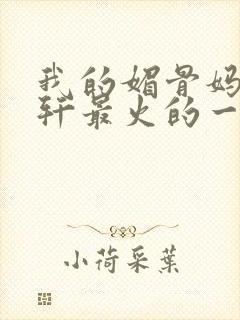 我的媚骨妈
轩最火的一
小荷采葉